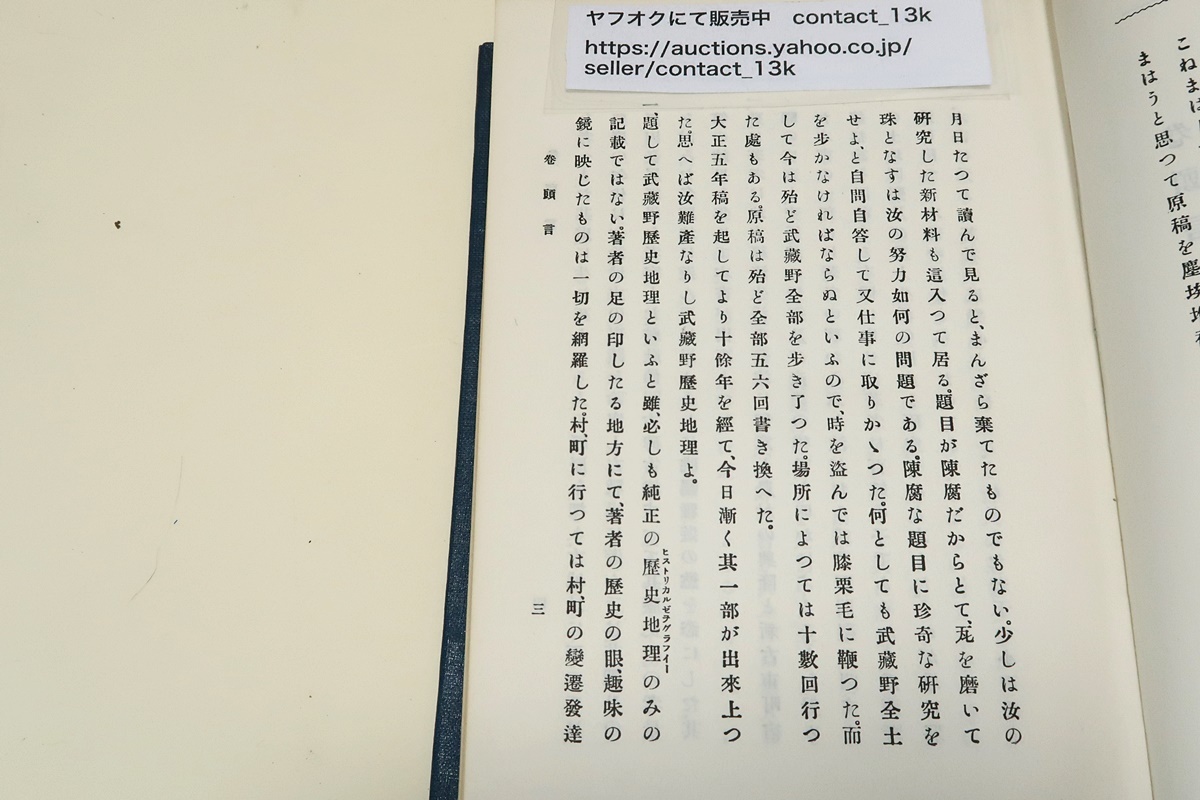 ヤフオクにて販売中　contact_13k
https://auctions.yahoo.co.jp/
seller/contact_13k
まはうと思つて原稿を塵埃
月日たつて讀んで見ると、まんざら棄てたものでもない。少しは汝の
研究した新材料も這入つて居る。題目が陳腐だからとて、瓦を磨いて
珠となすは汝の努力如何の問題である。陳腐な題目に珍奇な研究を
せよ、と自問自答して又仕事に取りかゝつた。何としても武藏野全土
を歩かなければならぬといふので、時を盜んでは膝栗毛に鞭つた。而
して今は殆ど武藏野全部を歩き了つた。場所によつては十數回行つ
た處もある。原稿は殆ど全部五六回書き換へた。
大正五年稿を起してより十餘年を經て、今日漸く其一部が出來上つ
た。思へば汝難產なりし武藏野歷史地理よ。
一、題して武藏野歷史地理といふと雖、必しも純正の歷史地理のみの
ヒストリカルゼヲグラフイー
記載ではない。著者の足の印したる地方にて、著者の歷史の眼、趣味の
鏡に映じたものは一切を網羅した。村、町に行つては村、町の變遷發達
卷頭言
三